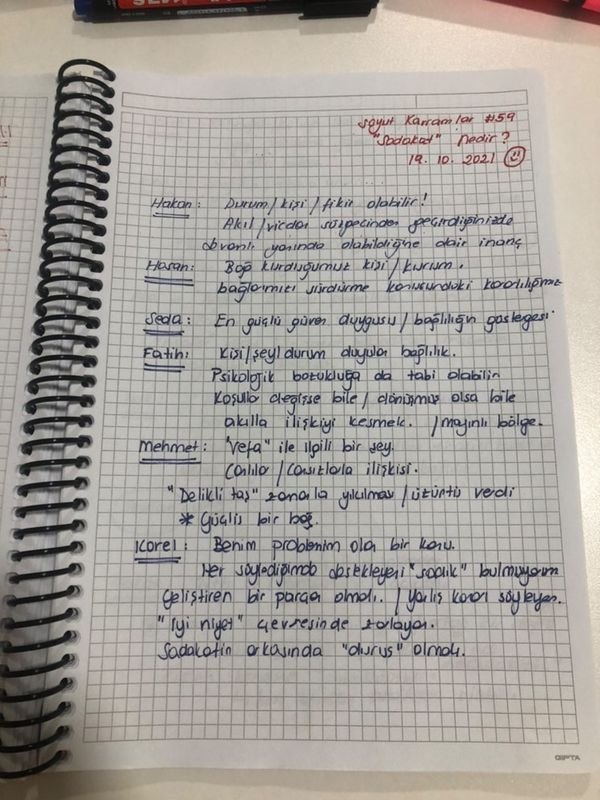 Soyut Kavramlar #59
"Sadakat" Nedir?
19.10.2021
Hakan: Durum/kişi/fikir olabilir!
Akıl/vicdan süzgecinden geçirdiğinizde
devamlı yanında olabildiğine dair inanç
Hasan: Bağ kurduğumuz kişi/kurum.
bağlarımızı sürdürme konusundaki kararlılığımız
Seda: En güçlü güven duygusu/bağlılığın göstergesi
Fatih: Kişi/şey/durum duyulan bağlılık.
Psikolojik bozukluğa da tabi olabilir
Koşullar değişse bile/dönüşmüş olsa bile
akılla ilişkiyi kesmek. /mayınlı bölge.
Mehmet: "vefa" ile ilgili bir şey.
Canlılar/cansızlarla ilişkisi.
"Delikli taş" zamanla yıkılması/üzüntüs verdi
* Güçlü bir bağ.
Korel: Benim problemim olan bir konu.
Her söylediğimde destekleyeni "sadık" bulmuyorum
Geliştiren bir parçan olmalı. /yanlış kararı söyleyen.
"iyi niyet" çevresinde zorlayan.
Sadakatin arkasında "duruş" olmalı.
GIPTA